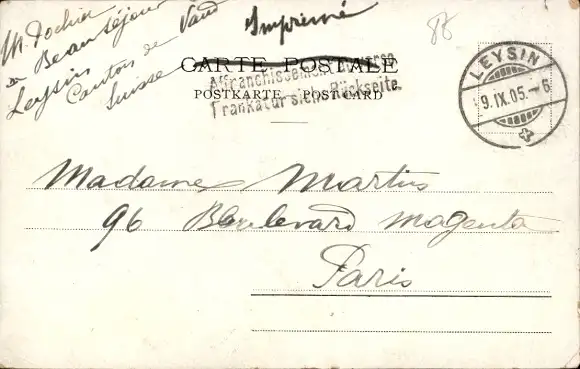 Beauséjour
Leysin
Canton de Vaud
Suisse
Imprimé
88
CARTE POSTALE
Affranchissement au verso
POSTKARTE - POST CARD
Frankatur siehe Rückseite.
LEYSIN
9.IX.05.-6
Madame Martin
96 Boulevard Magenta
Paris